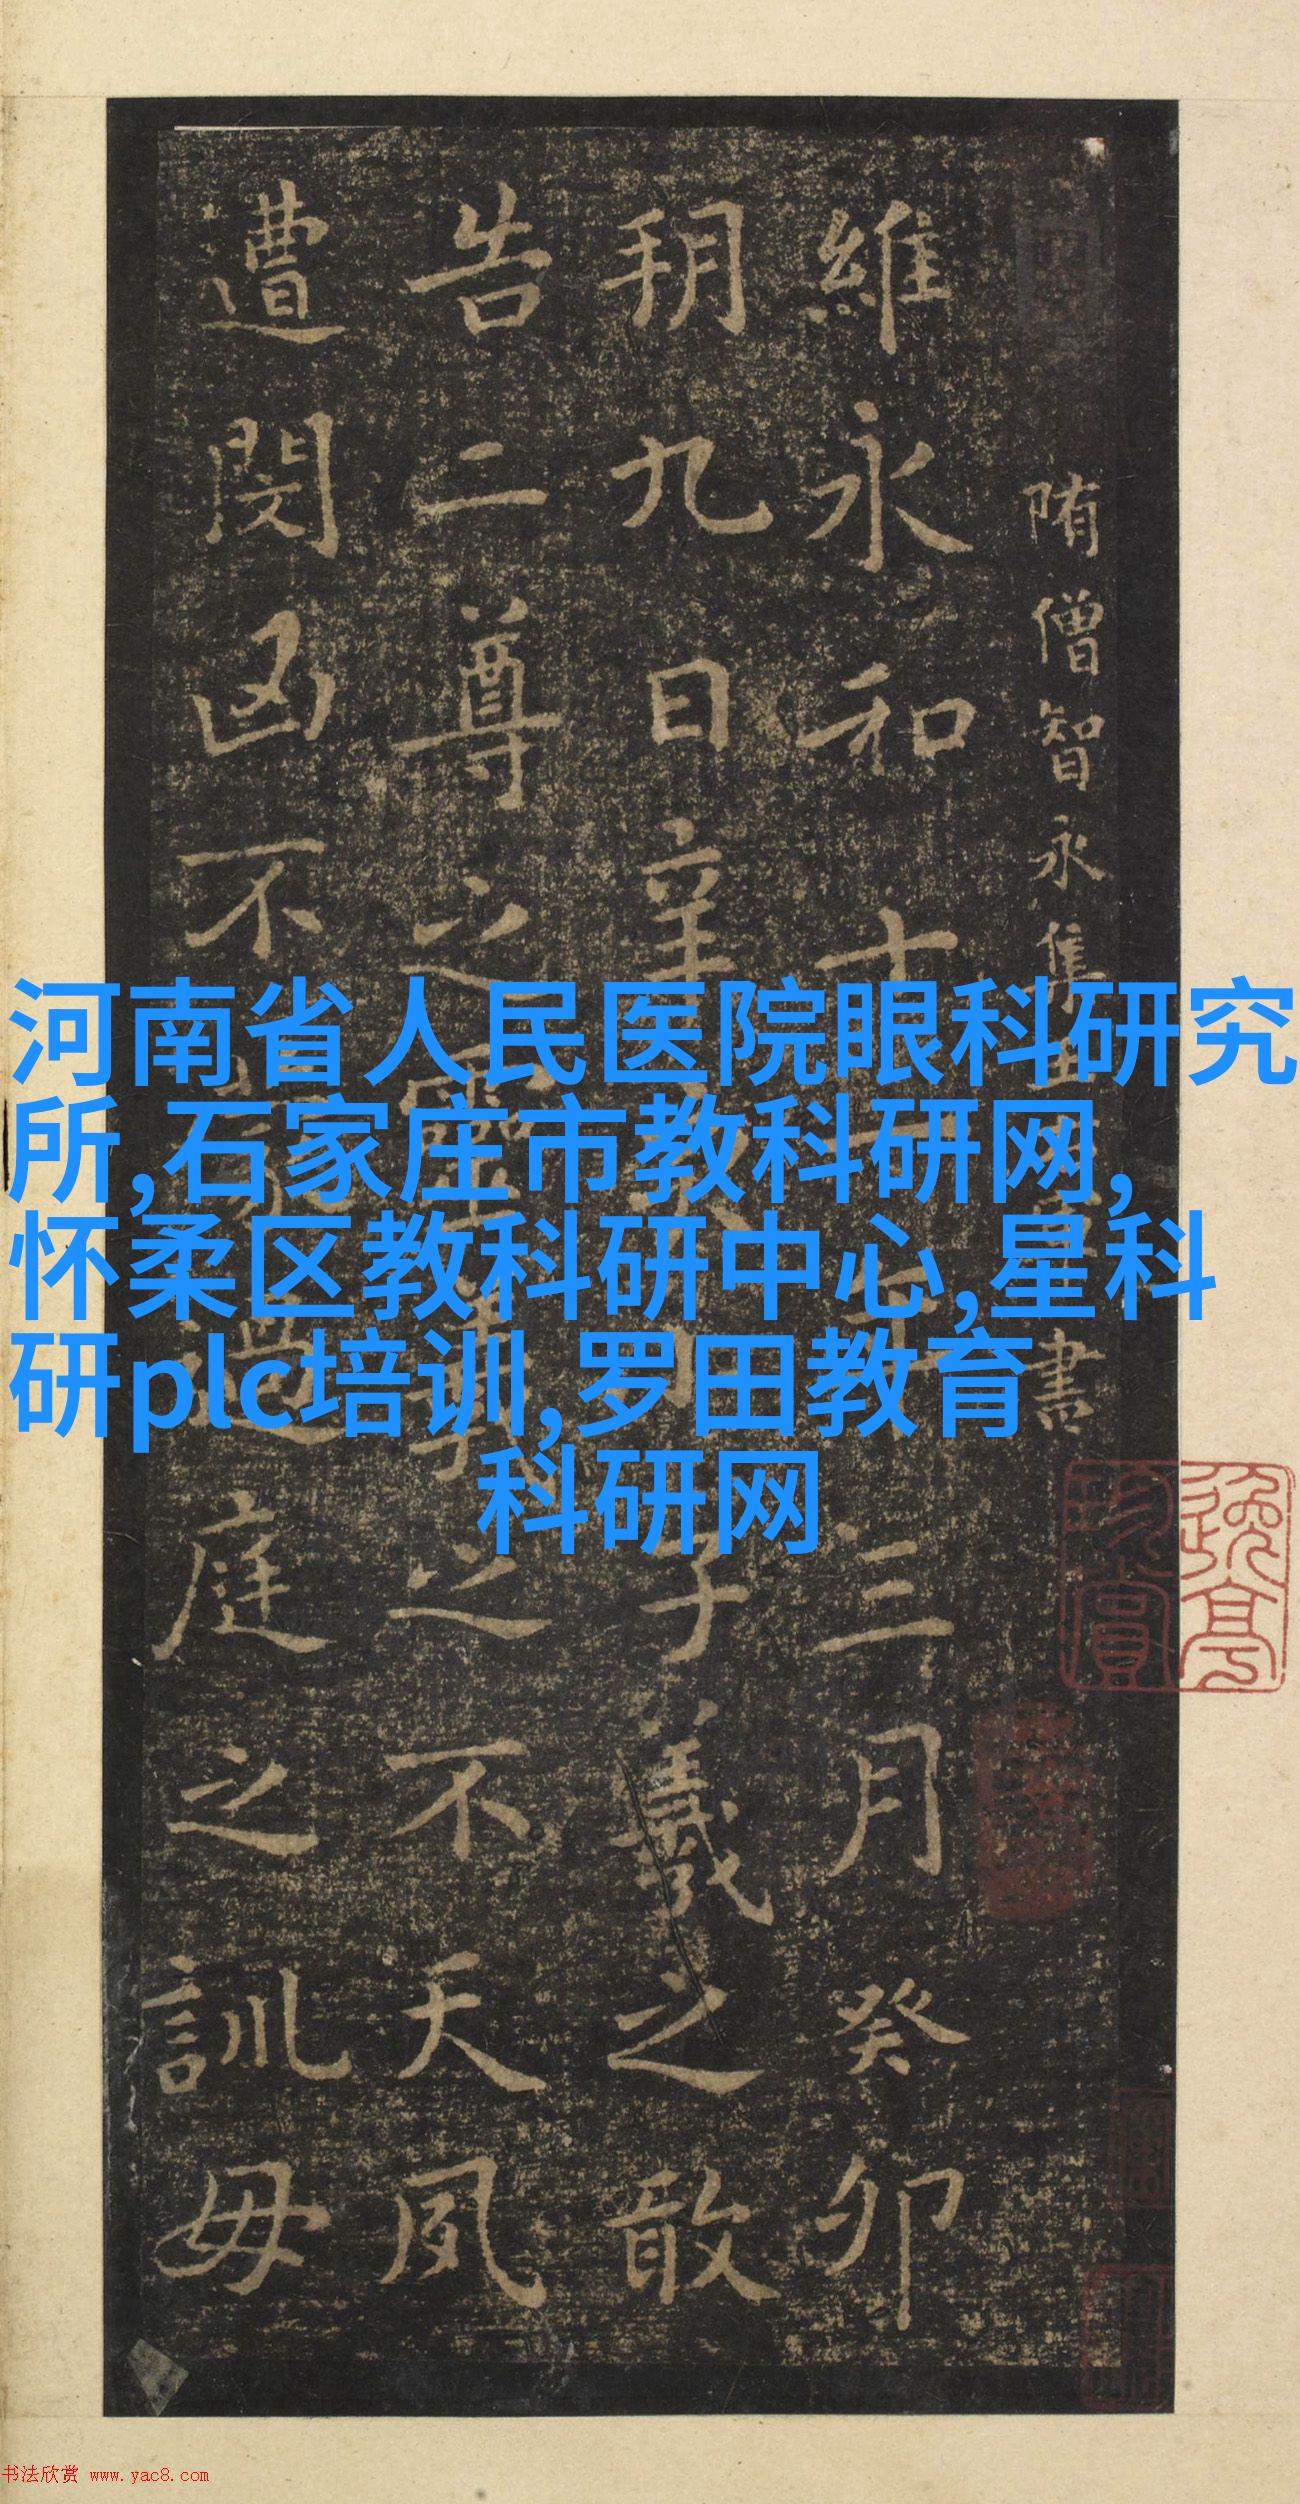 隋僧智永集王書
維永和十一年三月癸卯
朔九日辛亥小子羲之敢
告二尊之靈羲之不天夙
遭閔凶不蒙過庭之訓母
河南省人民医院眼科研究
所,石家庄市教科研网,
怀柔区教科研中心,星科
研plc培训,罗田教育
科研网
珍賞
书法欣赏 www.yac8.com